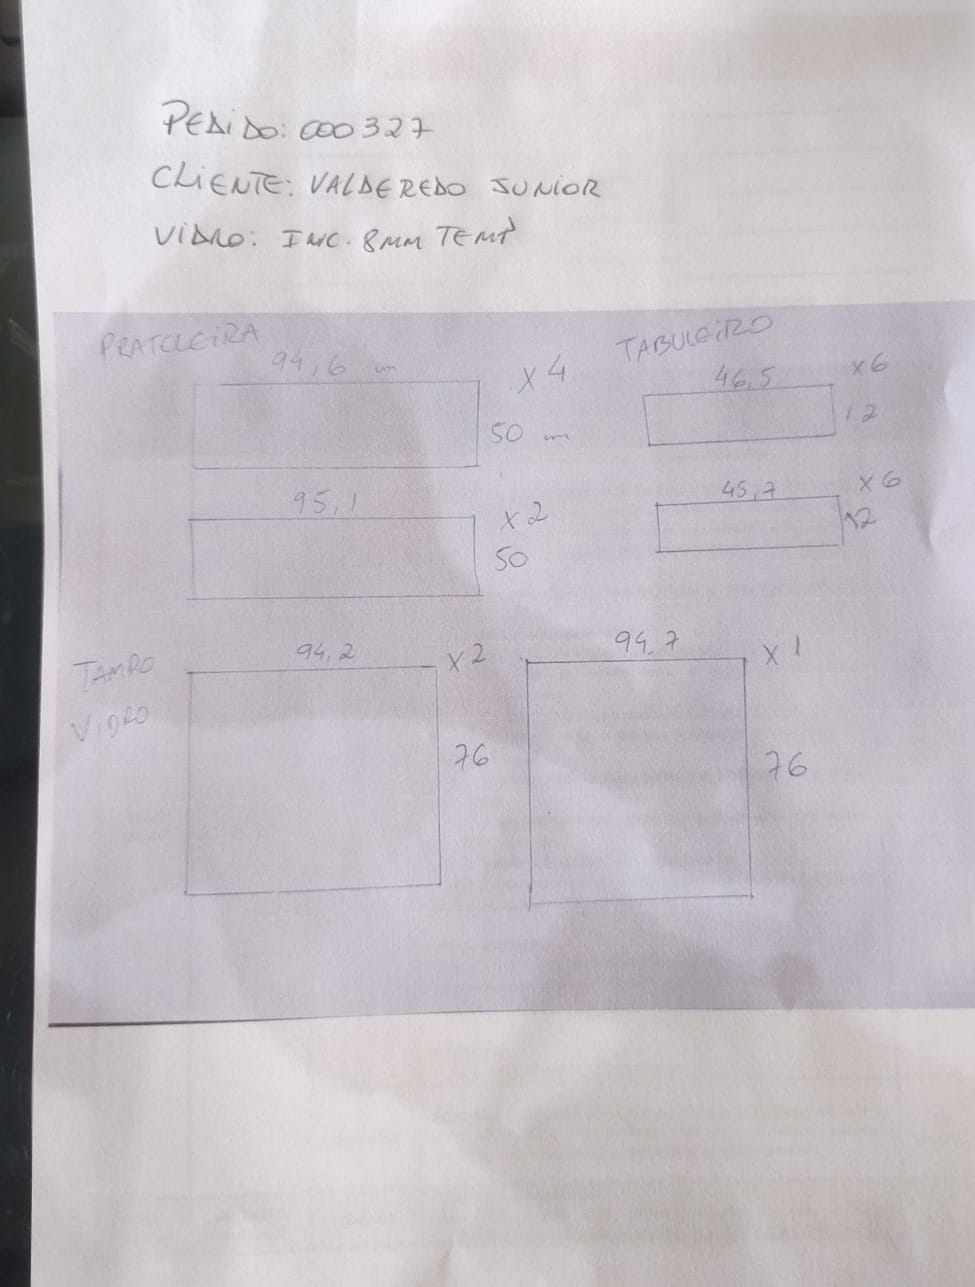 PEDIDO: 000327
CLIENTE: VALDEREDO JUNIOR
VIDRO: INC. 8MM TEMP
PRATELEIRA
94,6 cm
x 4
50 cm
95,1
x 2
50
TABULEIRO
46,5
x 6
12
45,7
x 6
12
TAMPO
VIDRO
94,2
x 2
76
94,7
x 1
76